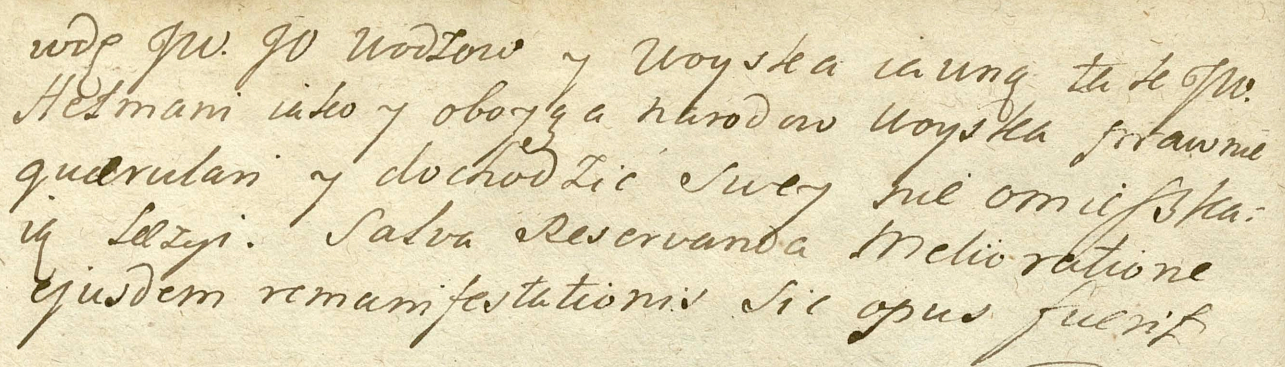 wdę JW. JO Wodzow y Woyska iawną tak JW.
Hetmani iako y oboyga narodow Woyska prawnie
quærulari y dochodzić Swey nie omieszka=
ią Lezyi. Salva Reservanda Meliöratione
ejusdem remanifestationis Sic opus fuerit